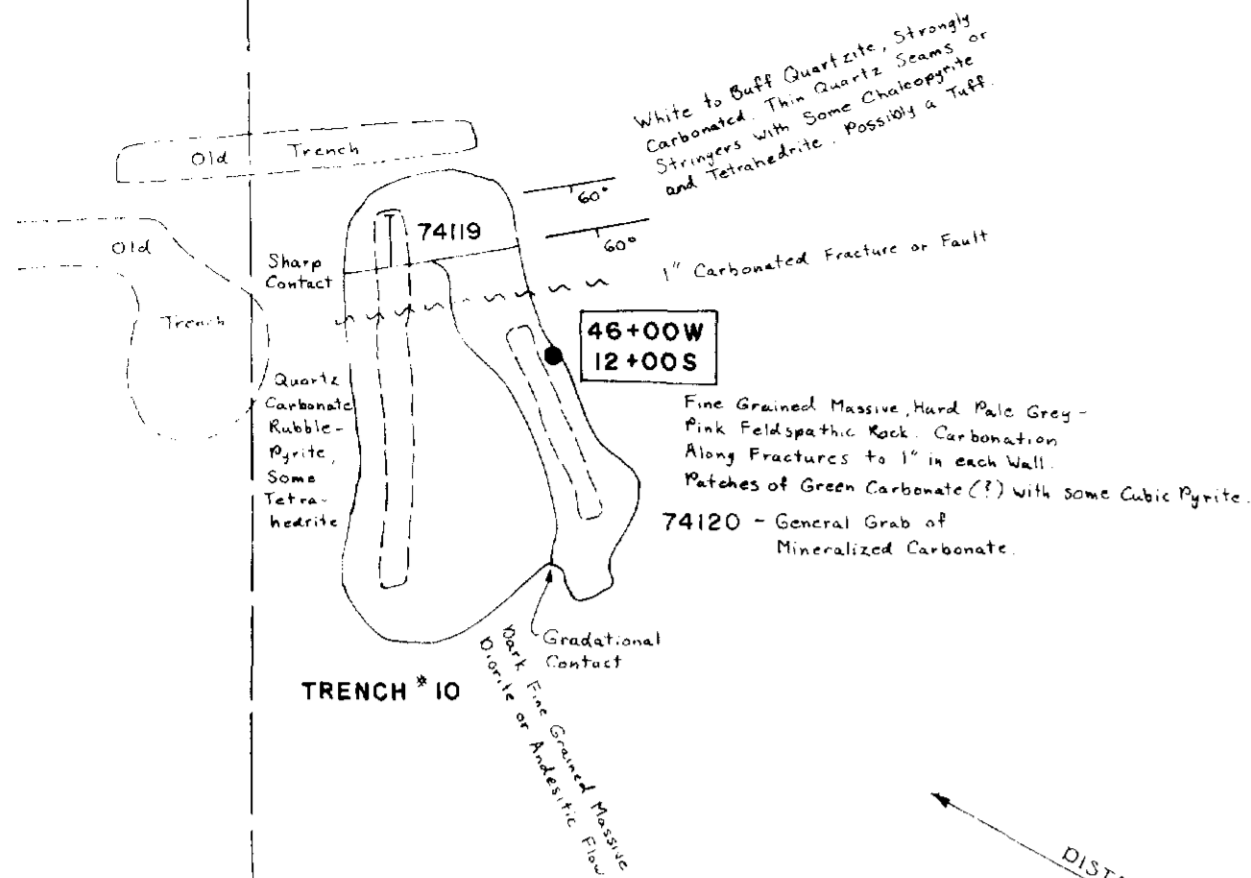 White to Buff Quartzite, Strongly
Carbonated. Thin Quartz Seams or
Stringers with Some Chalcopyrite
and Tetrahedrite. Possibly a Tuff.
Old Trench
60°
74119
60°
Old
Sharp
Contact
1" Carbonated Fracture or Fault
Trench
46+00W
12+00S
Quartz
Carbonate
Rubble-
Pyrite,
Some
Tetra-
hedrite
Fine Grained Massive, Hard Pale Grey-
Pink Feldspathic Rock. Carbonation
Along Fractures to 1" in each Wall.
Patches of Green Carbonate (?) with some Cubic Pyrite.
74120 - General Grab of
Mineralized Carbonate.
Gradational
Contact
TRENCH # 10
Dark Fine Grained Massive
Diorite or Andesitic Flow